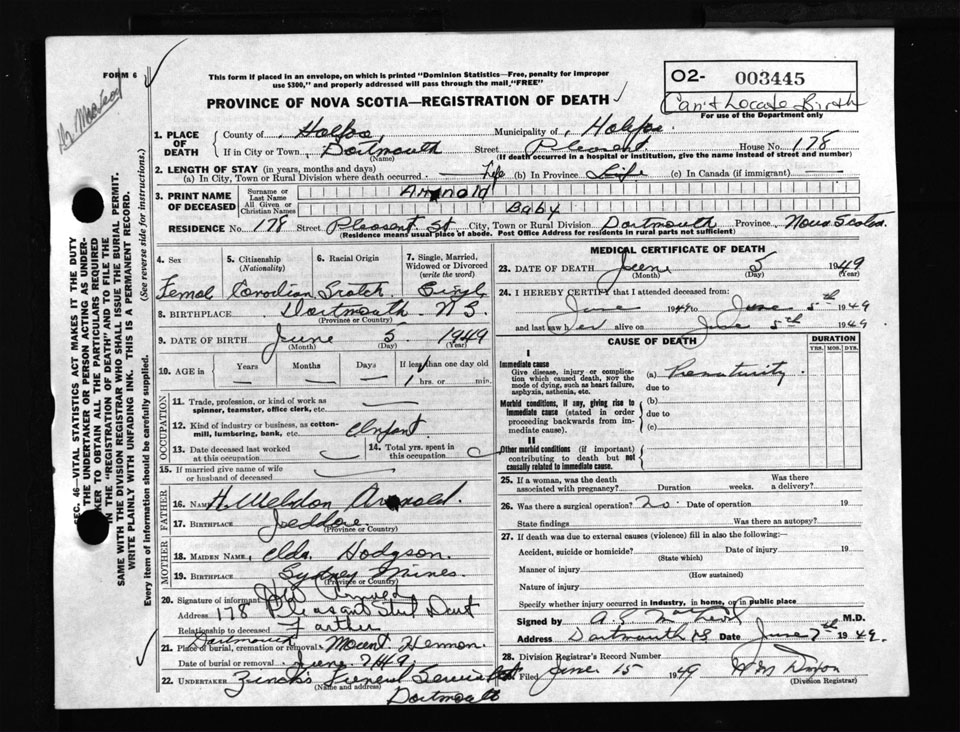 FORM 6
This form if placed in an envelope, on which is printed "Dominion Statistics—Free, penalty for improper
use $300," and properly addressed will pass through the mail, "FREE"
O2- 003445
Can't Locate Birth
For use of the Department only
PROVINCE OF NOVA SCOTIA—REGISTRATION OF DEATH
1. PLACE OF DEATH
County of Halifax Municipality of Halifax
If in City or Town Dartmouth Street Pleasent House No. 178
(Name) (If death occurred in a hospital or institution, give the name instead of street and number)
2. LENGTH OF STAY (in years, months and days)
(a) In City, Town or Rural Division where death occurred Life (b) In Province Life (c) In Canada (if immigrant) —
3. PRINT NAME OF DECEASED
Surname or Last Name Arnold
All Given or Christian Names Baby
RESIDENCE No. 178 Street Pleasent St City, Town or Rural Division Dartmouth Province Nova Scotia
(Residence means usual place of abode. Post Office Address for residents in rural parts not sufficient)
4. Sex
Femal
5. Citizenship (Nationality)
Canadian
6. Racial Origin
Scotch
7. Single, Married, Widowed or Divorced (write the word)
Singl
8. BIRTHPLACE Dartmouth N.S.
(Province or Country)
9. DATE OF BIRTH June 5 1949
(Month) (Day) (Year)
10. AGE in Years Months Days If less than one day old
— — — 1 hrs. or min.
OCCUPATION
11. Trade, profession, or kind of work as
spinner, teamster, office clerk, etc.
12. Kind of industry or business, as cotton-
mill, lumbering, bank, etc. Infant
13. Date deceased last worked
at this occupation
14. Total yrs. spent in
this occupation
15. If married give name of wife
or husband of deceased
FATHER
16. NAME H. Weldon Arnold
17. BIRTHPLACE Jeddore
(Province or Country)
MOTHER
18. MAIDEN NAME Elda Hodgson
19. BIRTHPLACE Sydney Mines
(Province or Country)
20. Signature of informant
Address 178 Pleasant Street Dart
Relationship to deceased Farther
Dartmouth
21. Place of burial, cremation or removal Mount Hermon
Date of burial or removal June 7 1949
22. UNDERTAKER Zinck's Funeral Service
(Name and address)
Dartmouth
MEDICAL CERTIFICATE OF DEATH
23. DATE OF DEATH June 5 1949
(Month) (Day)
24. I HEREBY CERTIFY that I attended deceased from:
June 1949 to June 5th 1949
and last saw her alive on June 5th 1949
CAUSE OF DEATH
DURATION
YRS. MOS. DYS.
I
Immediate cause
Give disease, injury or complica-
tion which caused death, NOT the
mode of dying, such as heart failure,
asphyxia, asthenia, etc.
(a) Prematurity
due to
Morbid conditions, if any, giving rise to
immediate cause (stated in order
proceeding backwards from im-
mediate cause).
(b)
due to
(c)
II
Other morbid conditions (if important)
contributing to death but not
causally related to immediate cause.
25. If a woman, was the death
associated with pregnancy? Duration weeks. Was there
a delivery?
26. Was there a surgical operation? No. Date of operation 19
State findings Was there an autopsy?
27. If death was due to external causes (violence) fill in also the following:
Accident, suicide or homicide? Date of injury 19
(State which)
Manner of injury
(How sustained)
Nature of injury
Specify whether injury occurred in industry, in home, or in public place
Signed by M.D.
Address Dartmouth NS Date June 7th 1949.
28. Division Registrar's Record Number
Filed June 15 1949
(Division Registrar)
SEC. 46—VITAL STATISTICS ACT MAKES IT THE DUTY
OF THE UNDERTAKER OR PERSON ACTING AS UNDER-
TAKER TO OBTAIN ALL THE PARTICULARS REQUIRED
IN THE "REGISTRATION OF DEATH" AND TO FILE THE
SAME WITH THE DIVISION REGISTRAR WHO SHALL ISSUE THE BURIAL PERMIT.
WRITE PLAINLY WITH UNFADING INK. THIS IS A PERMANENT RECORD.
Every item of information should be carefully supplied. (See reverse side for instructions.)